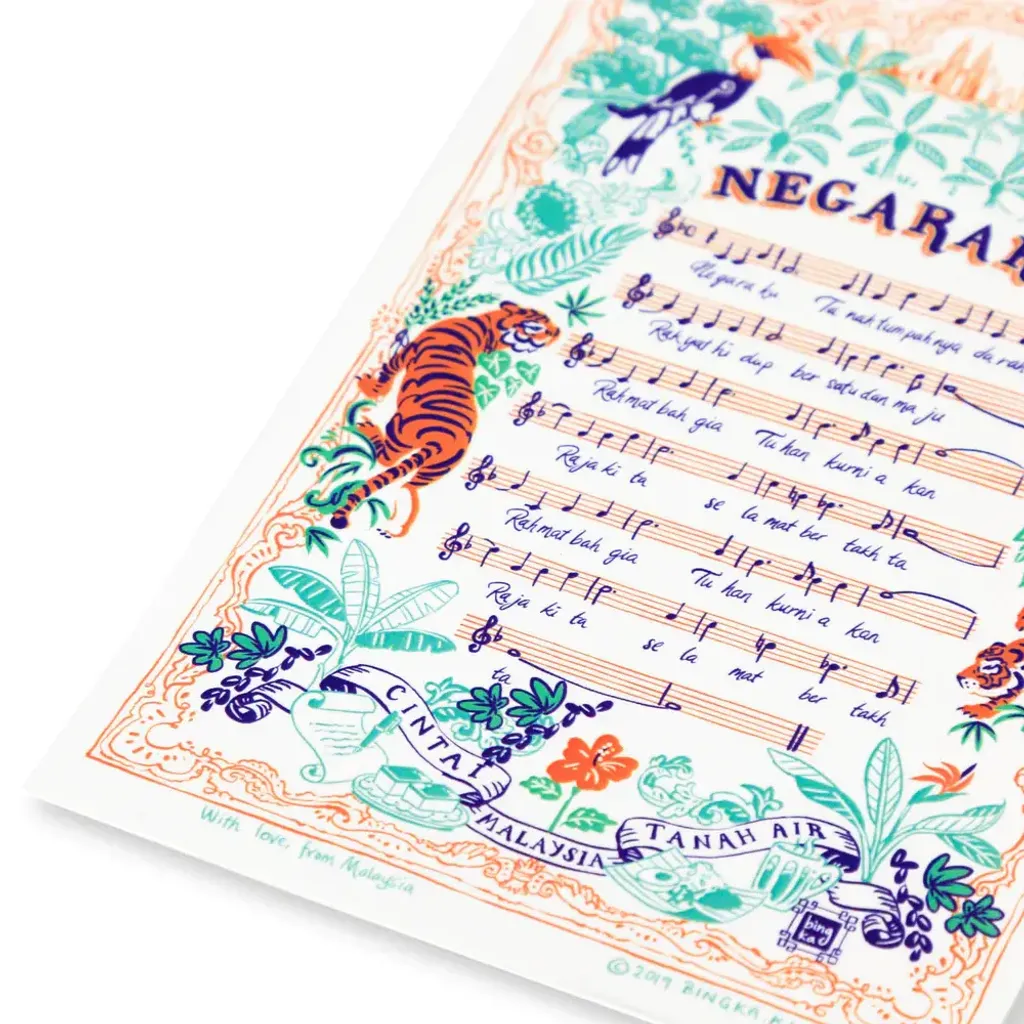 NEGARAK
Negara ku Ta nah tum pah nya da rah
Rak yat hi dup ber satu dan ma ju
Rah mat bah gia Tu han kurni a kan
Raja ki ta se la mat ber takh ta
Rah mat bah gia Tu han kurni a kan
Raja ki ta se la mat ber takh
ta
CINTAI
MALAYSIA
TANAH AIR
bing
ka
With love, from Malaysia
© 2019 BINGKA